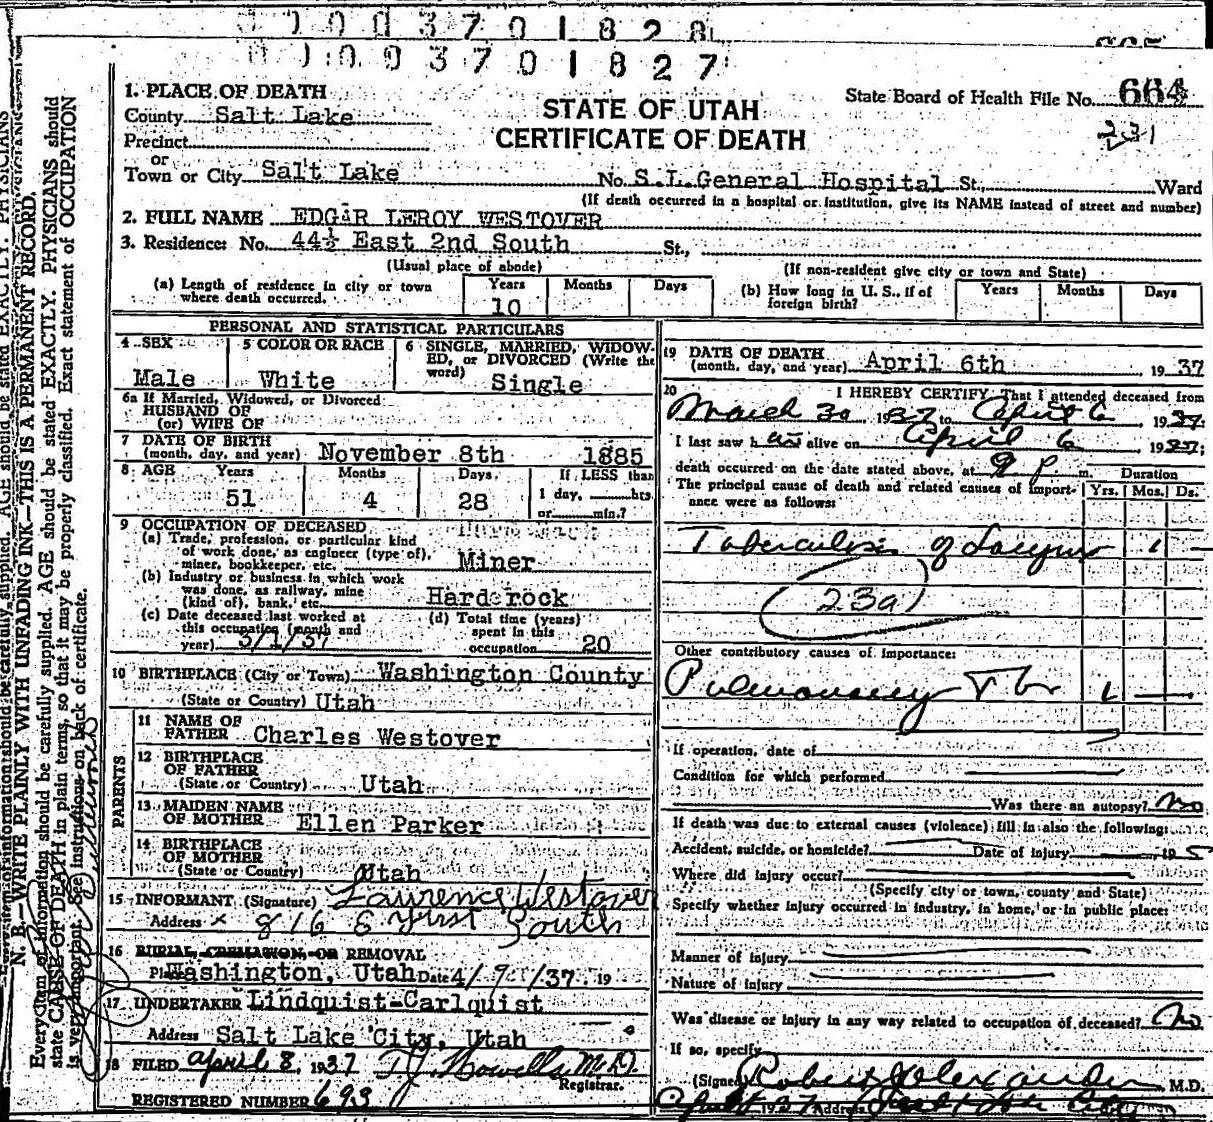 0 1 0 0 3 7 0 1 8 2 8
0 1 0 9 3 7 0 1 8 2 7
1. PLACE OF DEATH
County Salt Lake
Precinct
or
Town or City Salt Lake
STATE OF UTAH
CERTIFICATE OF DEATH
State Board of Health File No. 664
231
No. S.L. General Hospital St., Ward
(If death occurred in a hospital or institution, give its NAME instead of street and number)
2. FULL NAME EDGAR LEROY WESTOVER
3. Residence: No. 44½ East 2nd South St.,
(Usual place of abode)
(If non-resident give city or town and State)
(a) Length of residence in city or town where death occurred. Years 10 Months Days
(b) How long in U. S., if of foreign birth? Years Months Days
PERSONAL AND STATISTICAL PARTICULARS
4 SEX Male
5 COLOR OR RACE White
6 SINGLE, MARRIED, WIDOWED, or DIVORCED (Write the word) Single
6a If Married, Widowed, or Divorced
HUSBAND OF
(or) WIFE OF
7 DATE OF BIRTH
(month, day, and year) November 8th 1885
8 AGE Years 51 Months 4 Days 28
If LESS than
1 day, hrs.
or min.?
9 OCCUPATION OF DECEASED
(a) Trade, profession, or particular kind
of work done, as engineer (type of),
miner, bookkeeper, etc. Miner
(b) Industry or business in which work
was done, as railway, mine
(kind of), bank, etc. Hard rock
(c) Date deceased last worked at
this occupation (month and
year) 3/1/37
(d) Total time (years)
spent in this
occupation 20
10 BIRTHPLACE (City or Town) Washington County
(State or Country) Utah
PARENTS
11 NAME OF
FATHER Charles Westover
12 BIRTHPLACE
OF FATHER
(State or Country) Utah
13 MAIDEN NAME
OF MOTHER Ellen Parker
14 BIRTHPLACE
OF MOTHER
(State or Country) Utah
15 INFORMANT (Signature) Lawrence Westover
Address x 816 E First South
16 BURIAL, CREMATION, OR REMOVAL
Place Washington, Utah Date 4/9/37 19
17 UNDERTAKER Lindquist-Carlquist
Address Salt Lake City, Utah
18 FILED April 8, 1937 T.J. Howells M.D.
Registrar.
REGISTERED NUMBER 693
19 DATE OF DEATH
(month, day, and year) April 6th 1937
20 I HEREBY CERTIFY, That I attended deceased from
March 30 1937 to April 6 1937
I last saw h alive on April 6 1937;
death occurred on the date stated above, at 9 P m.
Duration
The principal cause of death and related causes of importance were as follows: Yrs. Mos. Ds.
Tuberculosis of Larynx 1 —
(23a)
Other contributory causes of importance:
Pulmonary Tb 1 —
If operation, date of
Condition for which performed
Was there an autopsy? No
If death was due to external causes (violence) fill in also the following:
Accident, suicide, or homicide? Date of injury 19
Where did injury occur?
(Specify city or town, county and State)
Specify whether injury occurred in industry, in home, or in public place:
Manner of injury
Nature of injury
Was disease or injury in any way related to occupation of deceased? No
If so, specify
(Signed) Robert Alexander M.D.
1937 Address Salt Lake City
N. B.—WRITE PLAINLY WITH UNFADING INK—THIS IS A PERMANENT RECORD.
Every item of information should be carefully supplied. AGE should be stated EXACTLY. PHYSICIANS should
state CAUSE OF DEATH in plain terms, so that it may be properly classified. Exact statement of OCCUPATION
is very important. See instructions on back of certificate.